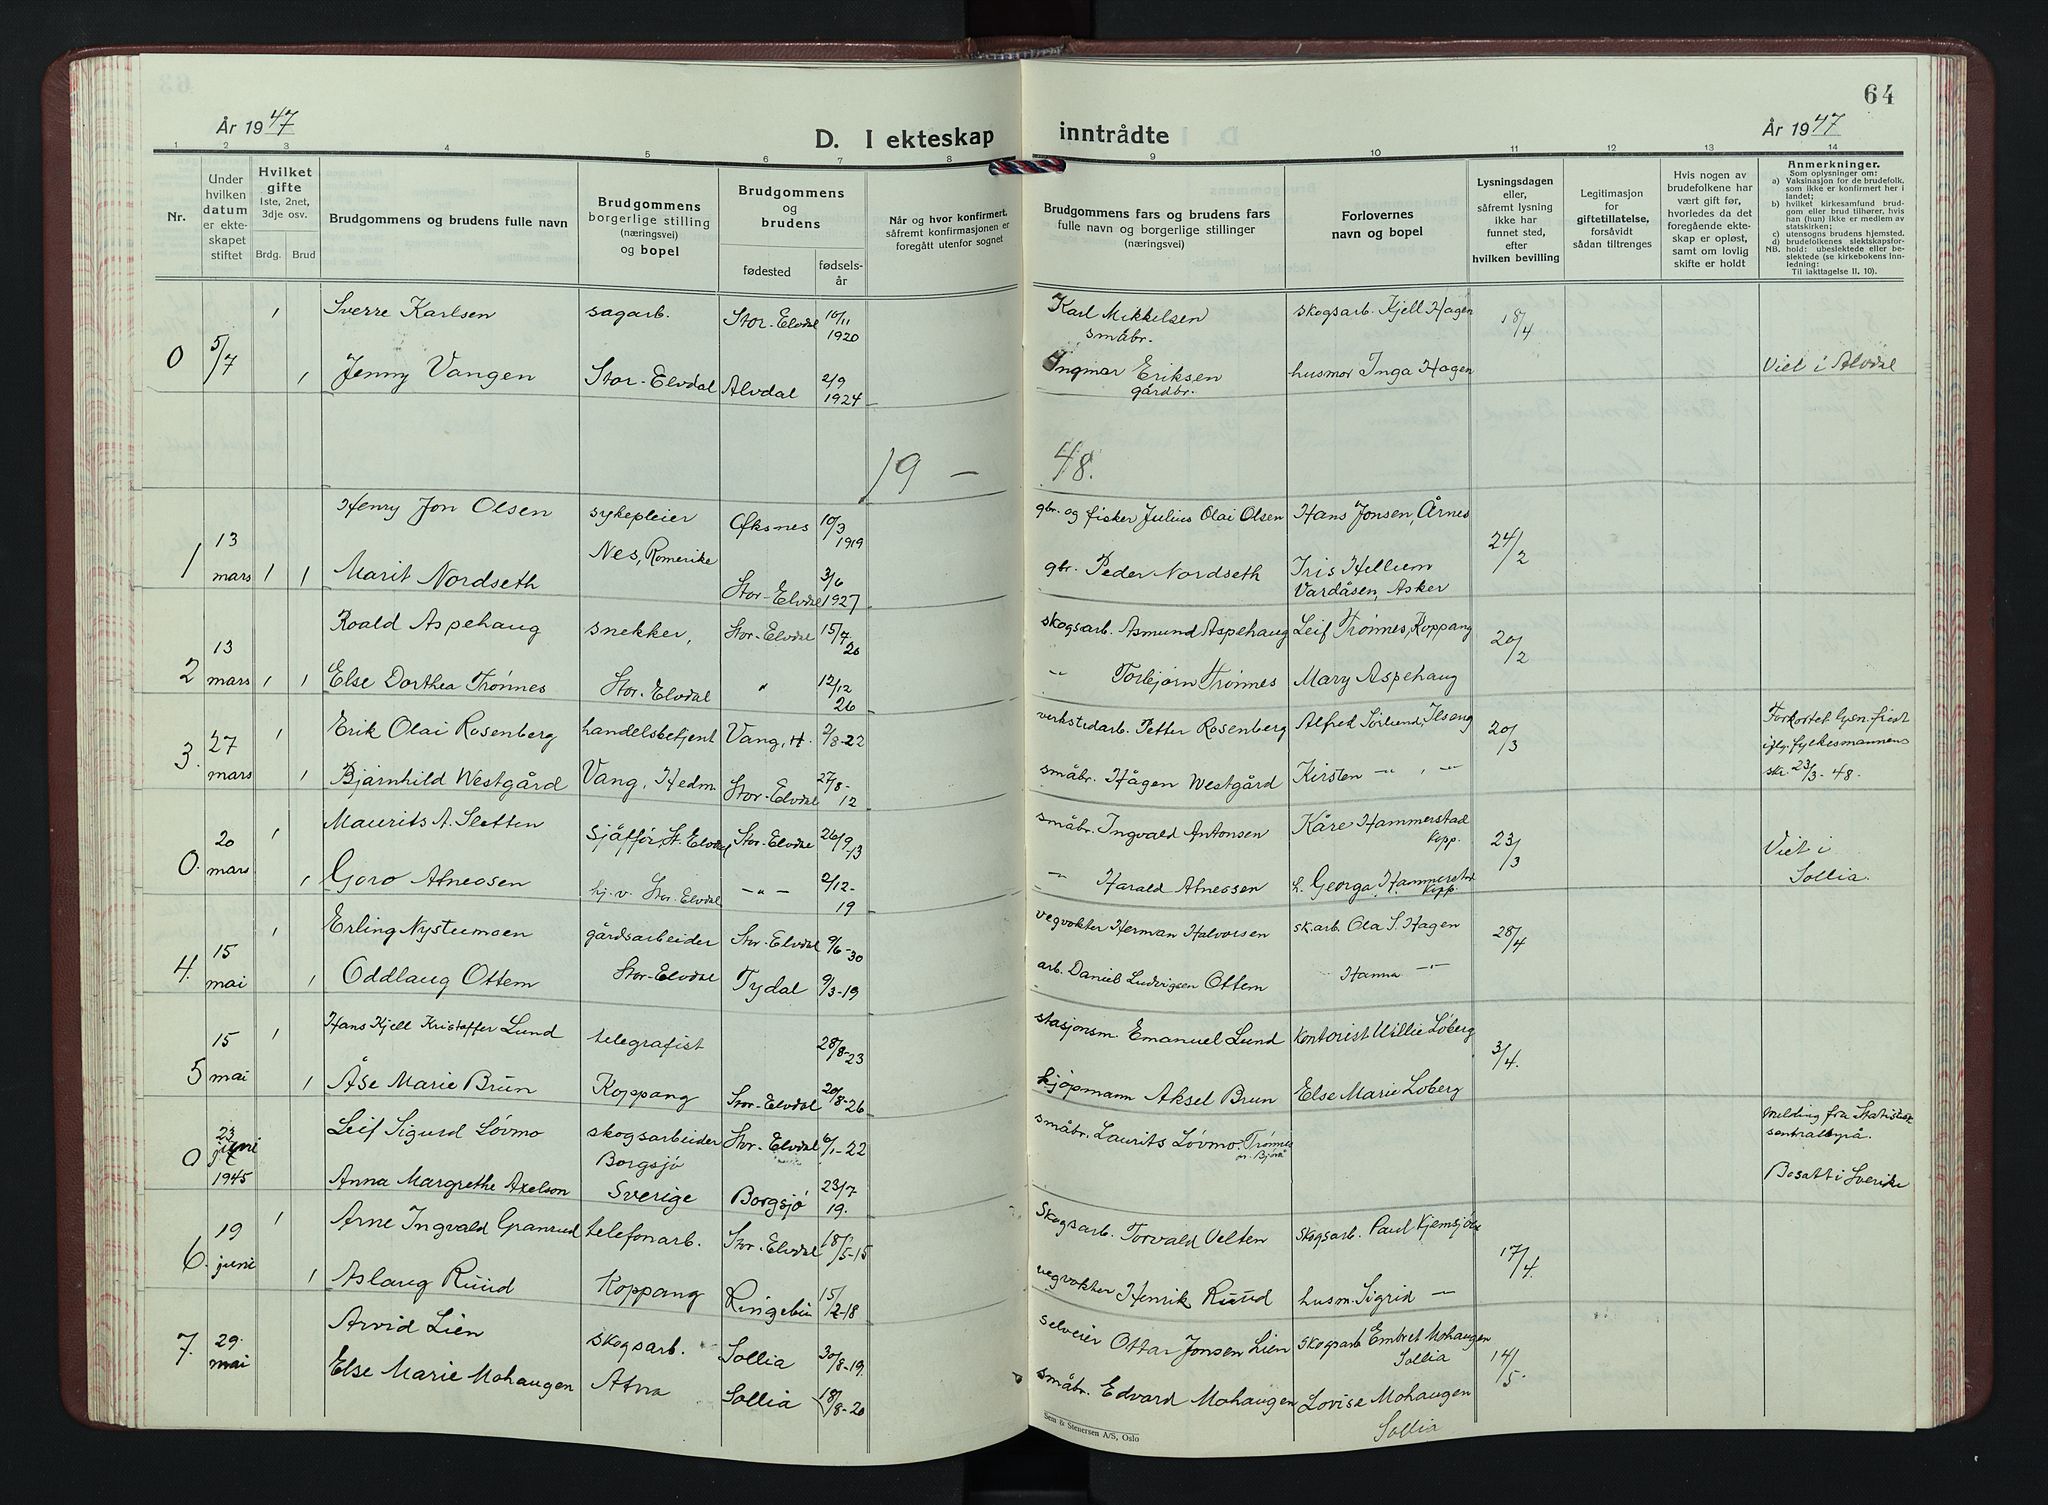 64
År 1947
D. I ekteskap inntrådte
År 1947
1 2 3 4 5 6 7 8 9 10 11 12 13 14
Nr.
Under hvilken datum er ekteskapet stiftet
Hvilket gifte 1ste, 2net, 3dje osv.
Brdg. Brud
Brudgommens og brudens fulle navn
Brudgommens borgerlige stilling (næringsvei) og bopel
Brudgommens og brudens
fødested
fødselsår
Når og hvor konfirmert, såfremt konfirmasjonen er foregått utenfor sognet
Brudgommens fars og brudens fars fulle navn og borgerlige stillinger (næringsvei)
Forlovernes navn og bopel
Lysningsdagen eller, såfremt lysning ikke har funnet sted, efter hvilken bevilling
Legitimasjon for giftetillatelse, forsåvidt sådan tiltrenges
Hvis nogen av brudefolkene har vært gift før, hvorledes da det foregående ekteskap er opløst, samt om lovlig skifte er holdt
Anmerkninger.
Som oplysning om:
a) Vaksinasjon for de brudefolk, som ikke er konfirmert her i landet;
b) hvilket kirkesamfund brudgom eller brud tilhører, hvis han (hun) ikke er medlem av statskirken;
c) utensogns brudens hjemsted.
d) brudefolkenes slektskapsforhold: ubeslektede eller beslektede (se kirkebokens innledning:
NB. Til iakttagelse II, 10).
0 5/7 1 Sverre Karlsen sagarb. Stor-Elvdal 10/11 1920 Karl Mikkelsen småbr. skogsarb. Kjell Hagen 18/4
1 Jenny Vangen Stor-Elvdal Alvdal 2/9 1924 Ingmar Eriksen gårdbr. husmor Inga Hagen Viet i Alvdal
19 – 48.
1 13 mars 1 1 Henry Jon Olsen sykepleier Øksnes 10/3 1919 gbr. og fisker Julius Olai Olsen Hans Jonsen, Årnes 24/2
Marit Nordseth Nes, Romerike Stor-Elvdal 3/6 1927 gbr. Peder Nordseth Iris Hellum Vardåsen, Asker
2 13 mars 1 1 Roald Aspehaug snekker, Stor-Elvdal 15/4 20 skogsarb. Asmund Aspehaug Leif Trønnes, Koppang 20/2
Else Dorthea Trønnes Stor-Elvdal " 12/12 26 -"- Torbjørn Trønnes Mary Aspehaug
3. 27 mars 1 Erik Olai Rosenberg handelsbetjent Vang, H. 2/8-22 verkstedarb. Petter Rosenberg Alfred Sørlund, Ilseng 20/3 Forkortet lysn. frist iflg. fylkesmannens skr. 23/3-48.
1 Bjarnhild Westgård Vang, Hedm. Stor-Elvdal 27/8-12 småbr. Hågen Westgård Kirsten -"- , -"-
0. 20 mars 1 Maurits A. Sletten sjåfør, St. Elvdal Stor-Elvdal 26/9-13 småbr. Ingvald Antonsen Kåre Hammerstad Kopp. 23/3 Viet i Sollia.
1 Goro Atneosen hj. v. Stor-Elvdal -"- 2/12-19 -"- Harald Atneosen h. Georga Hammerstad Kopp.
4. 15 mai 1 Erling Nystumoen gårdsarbeider Stor-Elvdal 9/6-30 vegvokter Herman Halvorsen sk.arb. Ola S. Hagen 28/4
1 Oddlaug Ottem Stor-Elvdal Tydal 9/3-19 arb. Daniel Ludvigsen Ottem Hanna -"-
5 15 mai 1 Hans Kjell Kristoffer Lund telegrafist 28/8-23 stasjonsm. Emanuel Lund Kontorist Willie Løberg 3/4.
1 Åse Marie Brun Koppang Stor-Elvdal 20/8-26 kjøpmann Aksel Brun Else Marie Løberg
0 23 juni 1945 Leif Sigurd Løvmo skogsarbeider Stor-Elvdal 6/1-22 småbr. Laurits Løvmo. Trønnes Melding fra Statistisk sentralbyrå.
Anna Margrethe Axelson Borgsjø Sverige Borgsjø 23/7 19. Bosatt i Sverike
6. 19 juni 1 Arne Ingvald Granrud telefonarb. Stor-Elvdal 18/5-15 Skogsarb. Torvald Velten Skogsarb. Paul Kjemsjøen 17/4.
1 Aslaug Ruud Koppang Ringebu 15/12-18 vegvokter Henrik Ruud husm. Sigrid -"-
7. 29. mai Arvid Lien skogsarb. Sollia 30/8-19. selveier Ottar Jonsen Lien Skogsarb Embret Mohaugen Sollia 14/5.
Else Marie Mohaugen Atna Sollia 18/8-20 småbr. Edvard Mohaugen Lovise Mohaugen Sollia
Sem & Stenersen A/S, Oslo